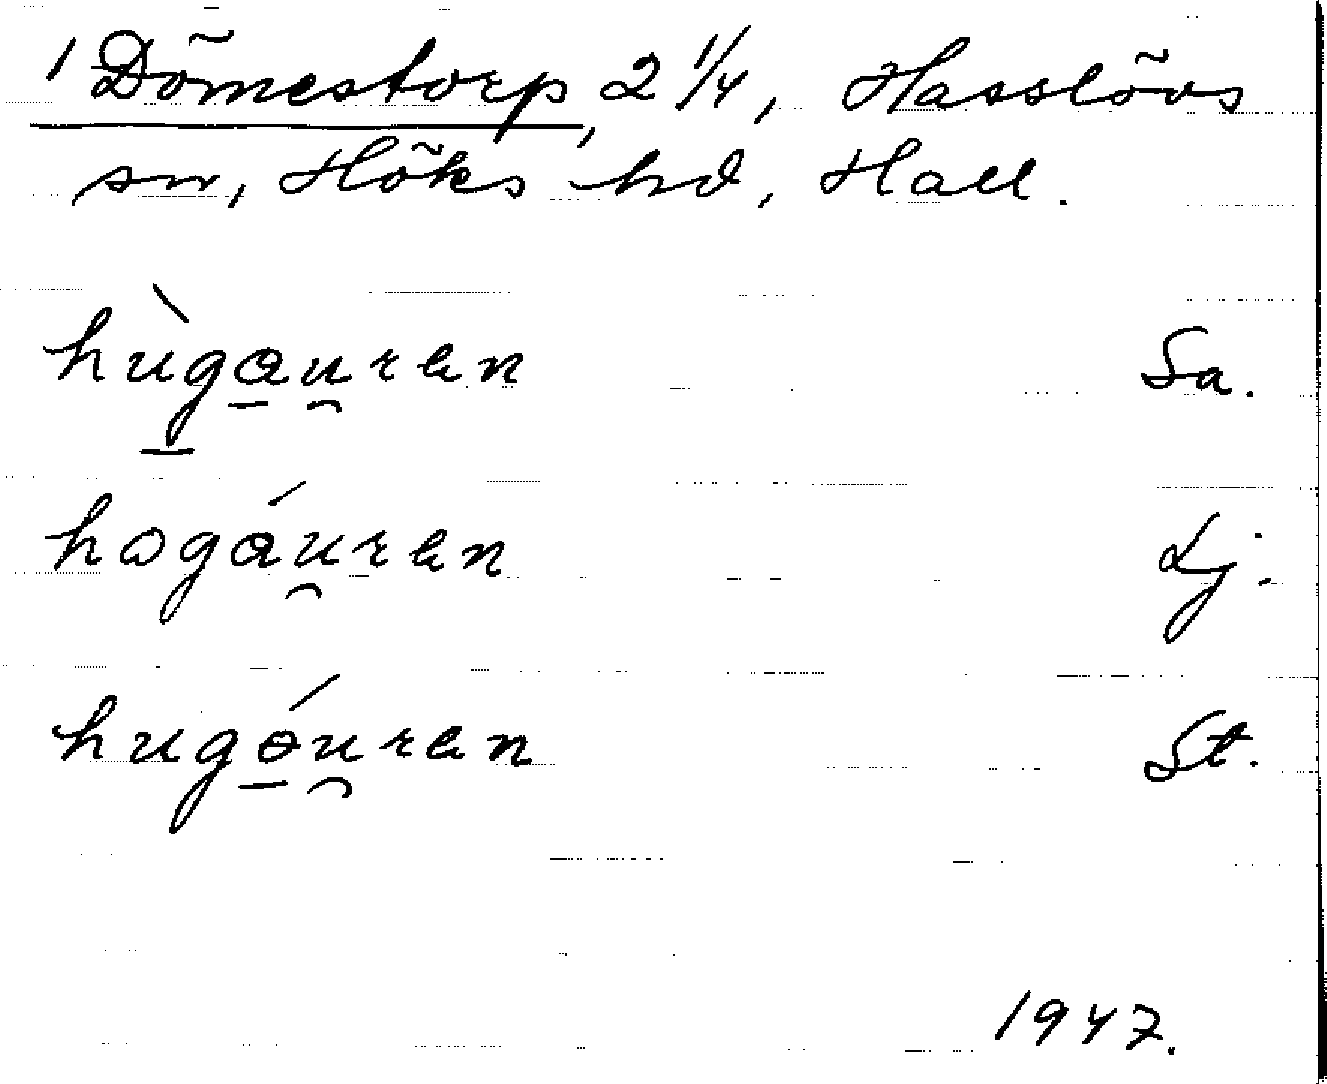 1 Dömestorp, 2 1/4, Hasslövs
sn, Höks hd, Hall.
hùgau̯ren Sa.
hogáu̯ren Lj.
hugóu̯ren St.
1947.